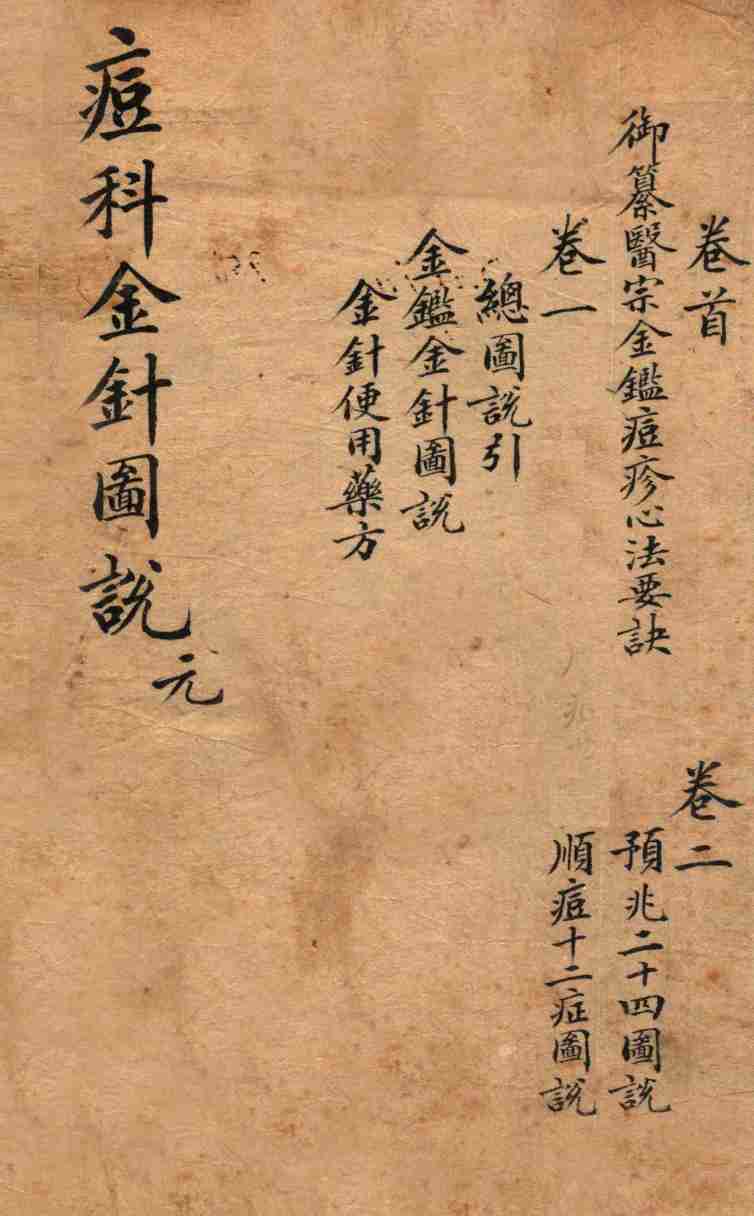 卷首
御纂醫宗金鑑痘疹心法要訣
卷一
總圖說引
金鑑金針圖說
金針便用藥方
卷二
預兆二十四圖說
順痘十二症圖說
痘科金針圖說 元